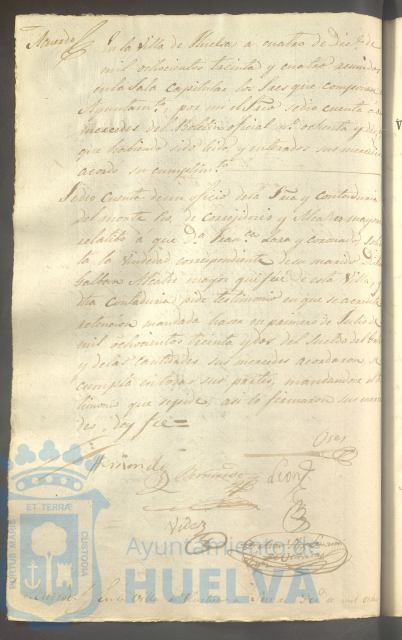 Acuerdo En la Villa de Huelva a cuatro de Dice. de
mil ochocientos treinta y cuatro reunidos
en la Sala Capitular los Sres que componen
Ayuntamto. por mi el Srio se dio cuenta a sus
mercedes del Boletin oficial no. ochenta y dos
que habiendo sido leido y enterados sus mercedes
acordo su cumplimto.
Se dio cuenta de un oficio de la Tria y Contaduria
del monte Pio de corregidores y Alcaldes mayores
relatibo á que Da. Franca. Lara y Coronado
la la Viudedad correspondiente de su marido Dn
Galban Alcalde mayor que fue de esta Villa, y
dha Contaduria pide testimonio en que se acredite
retencion mandada hacer en primero de Julio de
mil ochocientos treinta y dos del sueldo del
y de las cantidades sus mercedes acordaron se
cumpla en todas sus partes, mandandose el tes
timonio que se pide asi lo firmaron sus merce
des, doy fee =
Oses
Leon
Videz
ET TERRÆ
PORTUS MARIS
CUSTODIA
Ayuntamiento de
HUELVA
En la Villa de Huelva a